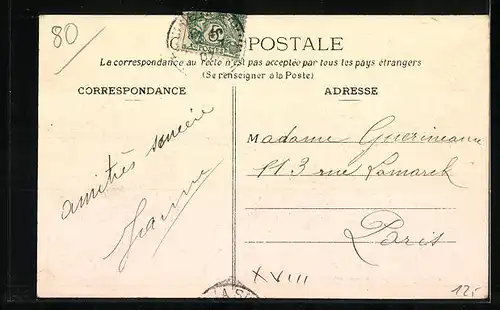 80
5
POSTALE
La correspondance au recto n'est pas acceptée par tous les pays étrangers
(Se renseigner à la Poste)
CORRESPONDANCE
ADRESSE
amitiés sincère
Jeanne
Madame Guerineau
113 rue Lamarck
Paris
XVIII
12,-